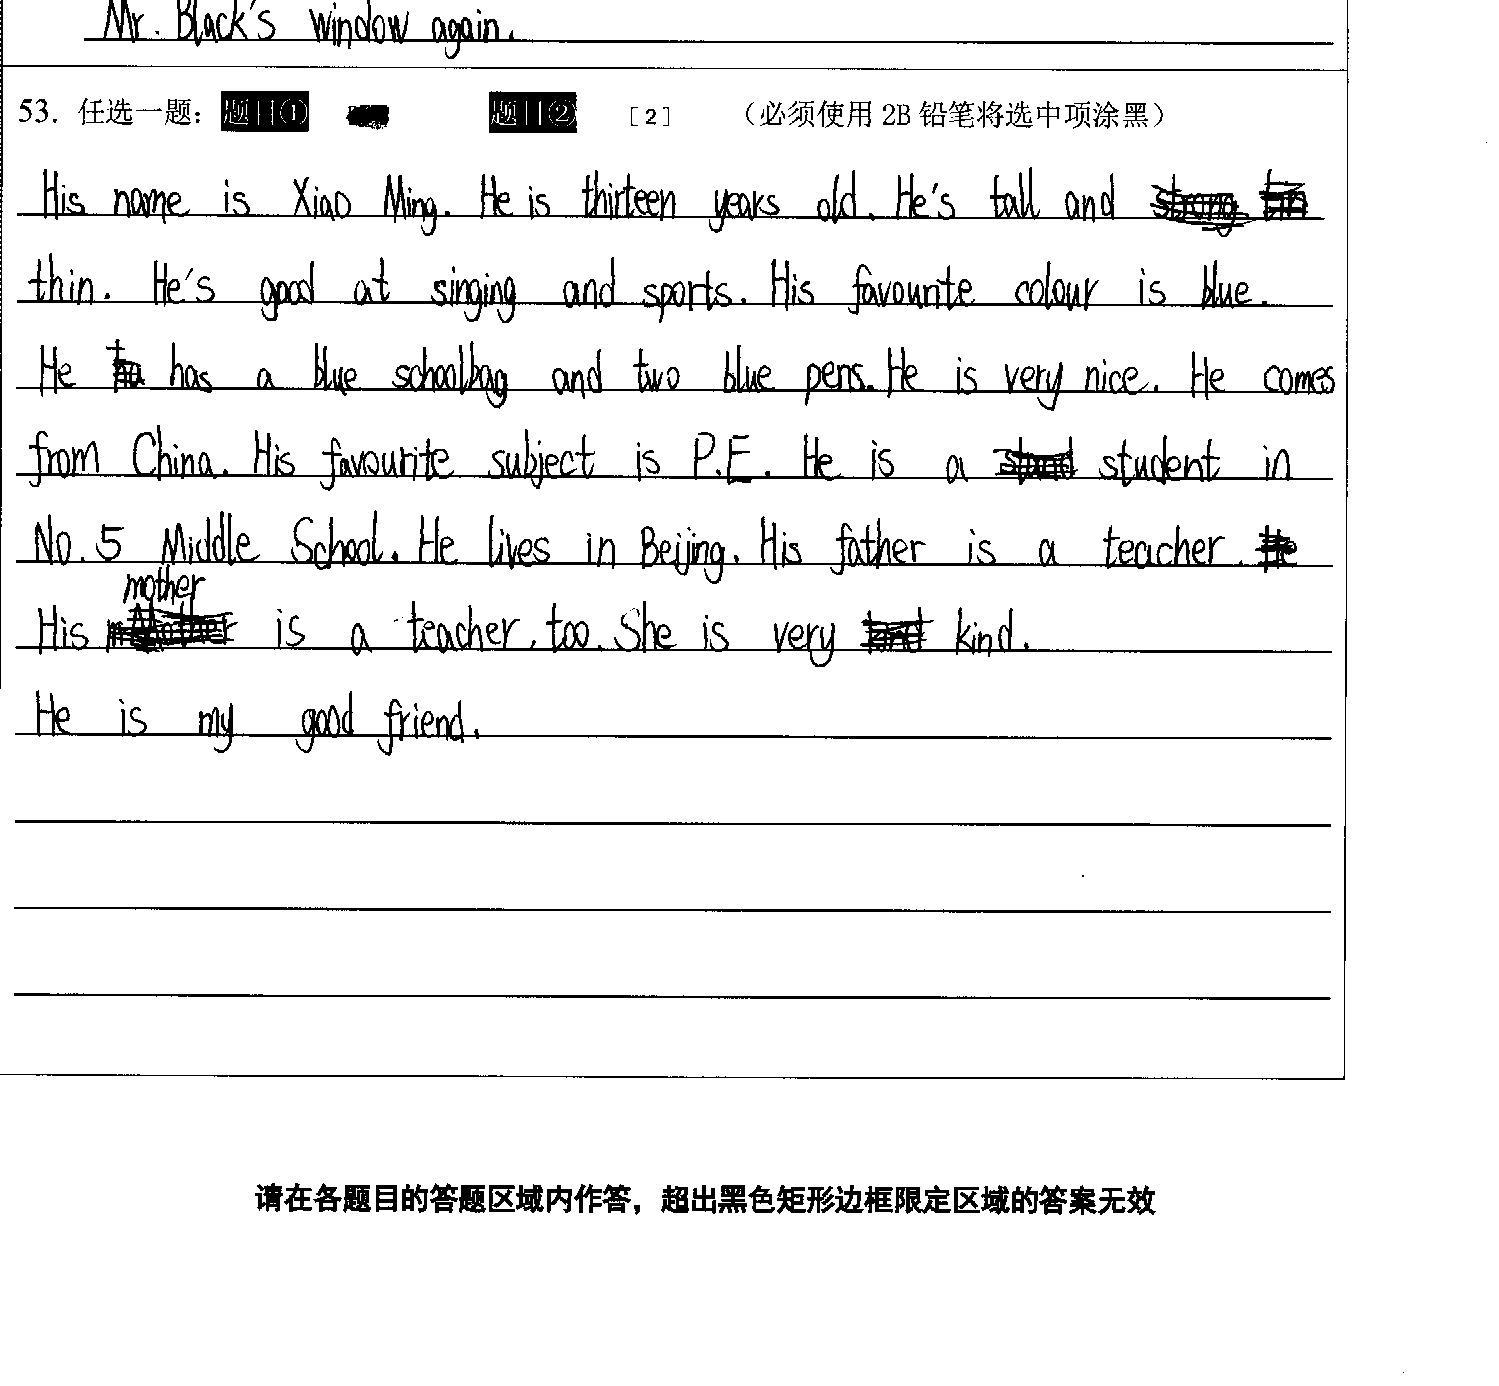 Mr. Black's window again.
53. 任选一题： 题目① 题目② [2] （必须使用 2B 铅笔将选中项涂黑）
His name is Xiao Ming. He is thirteen years old. He's tall and
thin. He's good at singing and sports. His favourite colour is blue.
He has a blue schoolbag and two blue pens. He is very nice. He comes
from China. His favourite subject is P.E. He is a student in
No. 5 Middle School. He lives in Beijing. His father is a teacher.
mother
His is a teacher, too. She is very kind.
He is my good friend.
请在各题目的答题区域内作答，超出黑色矩形边框限定区域的答案无效